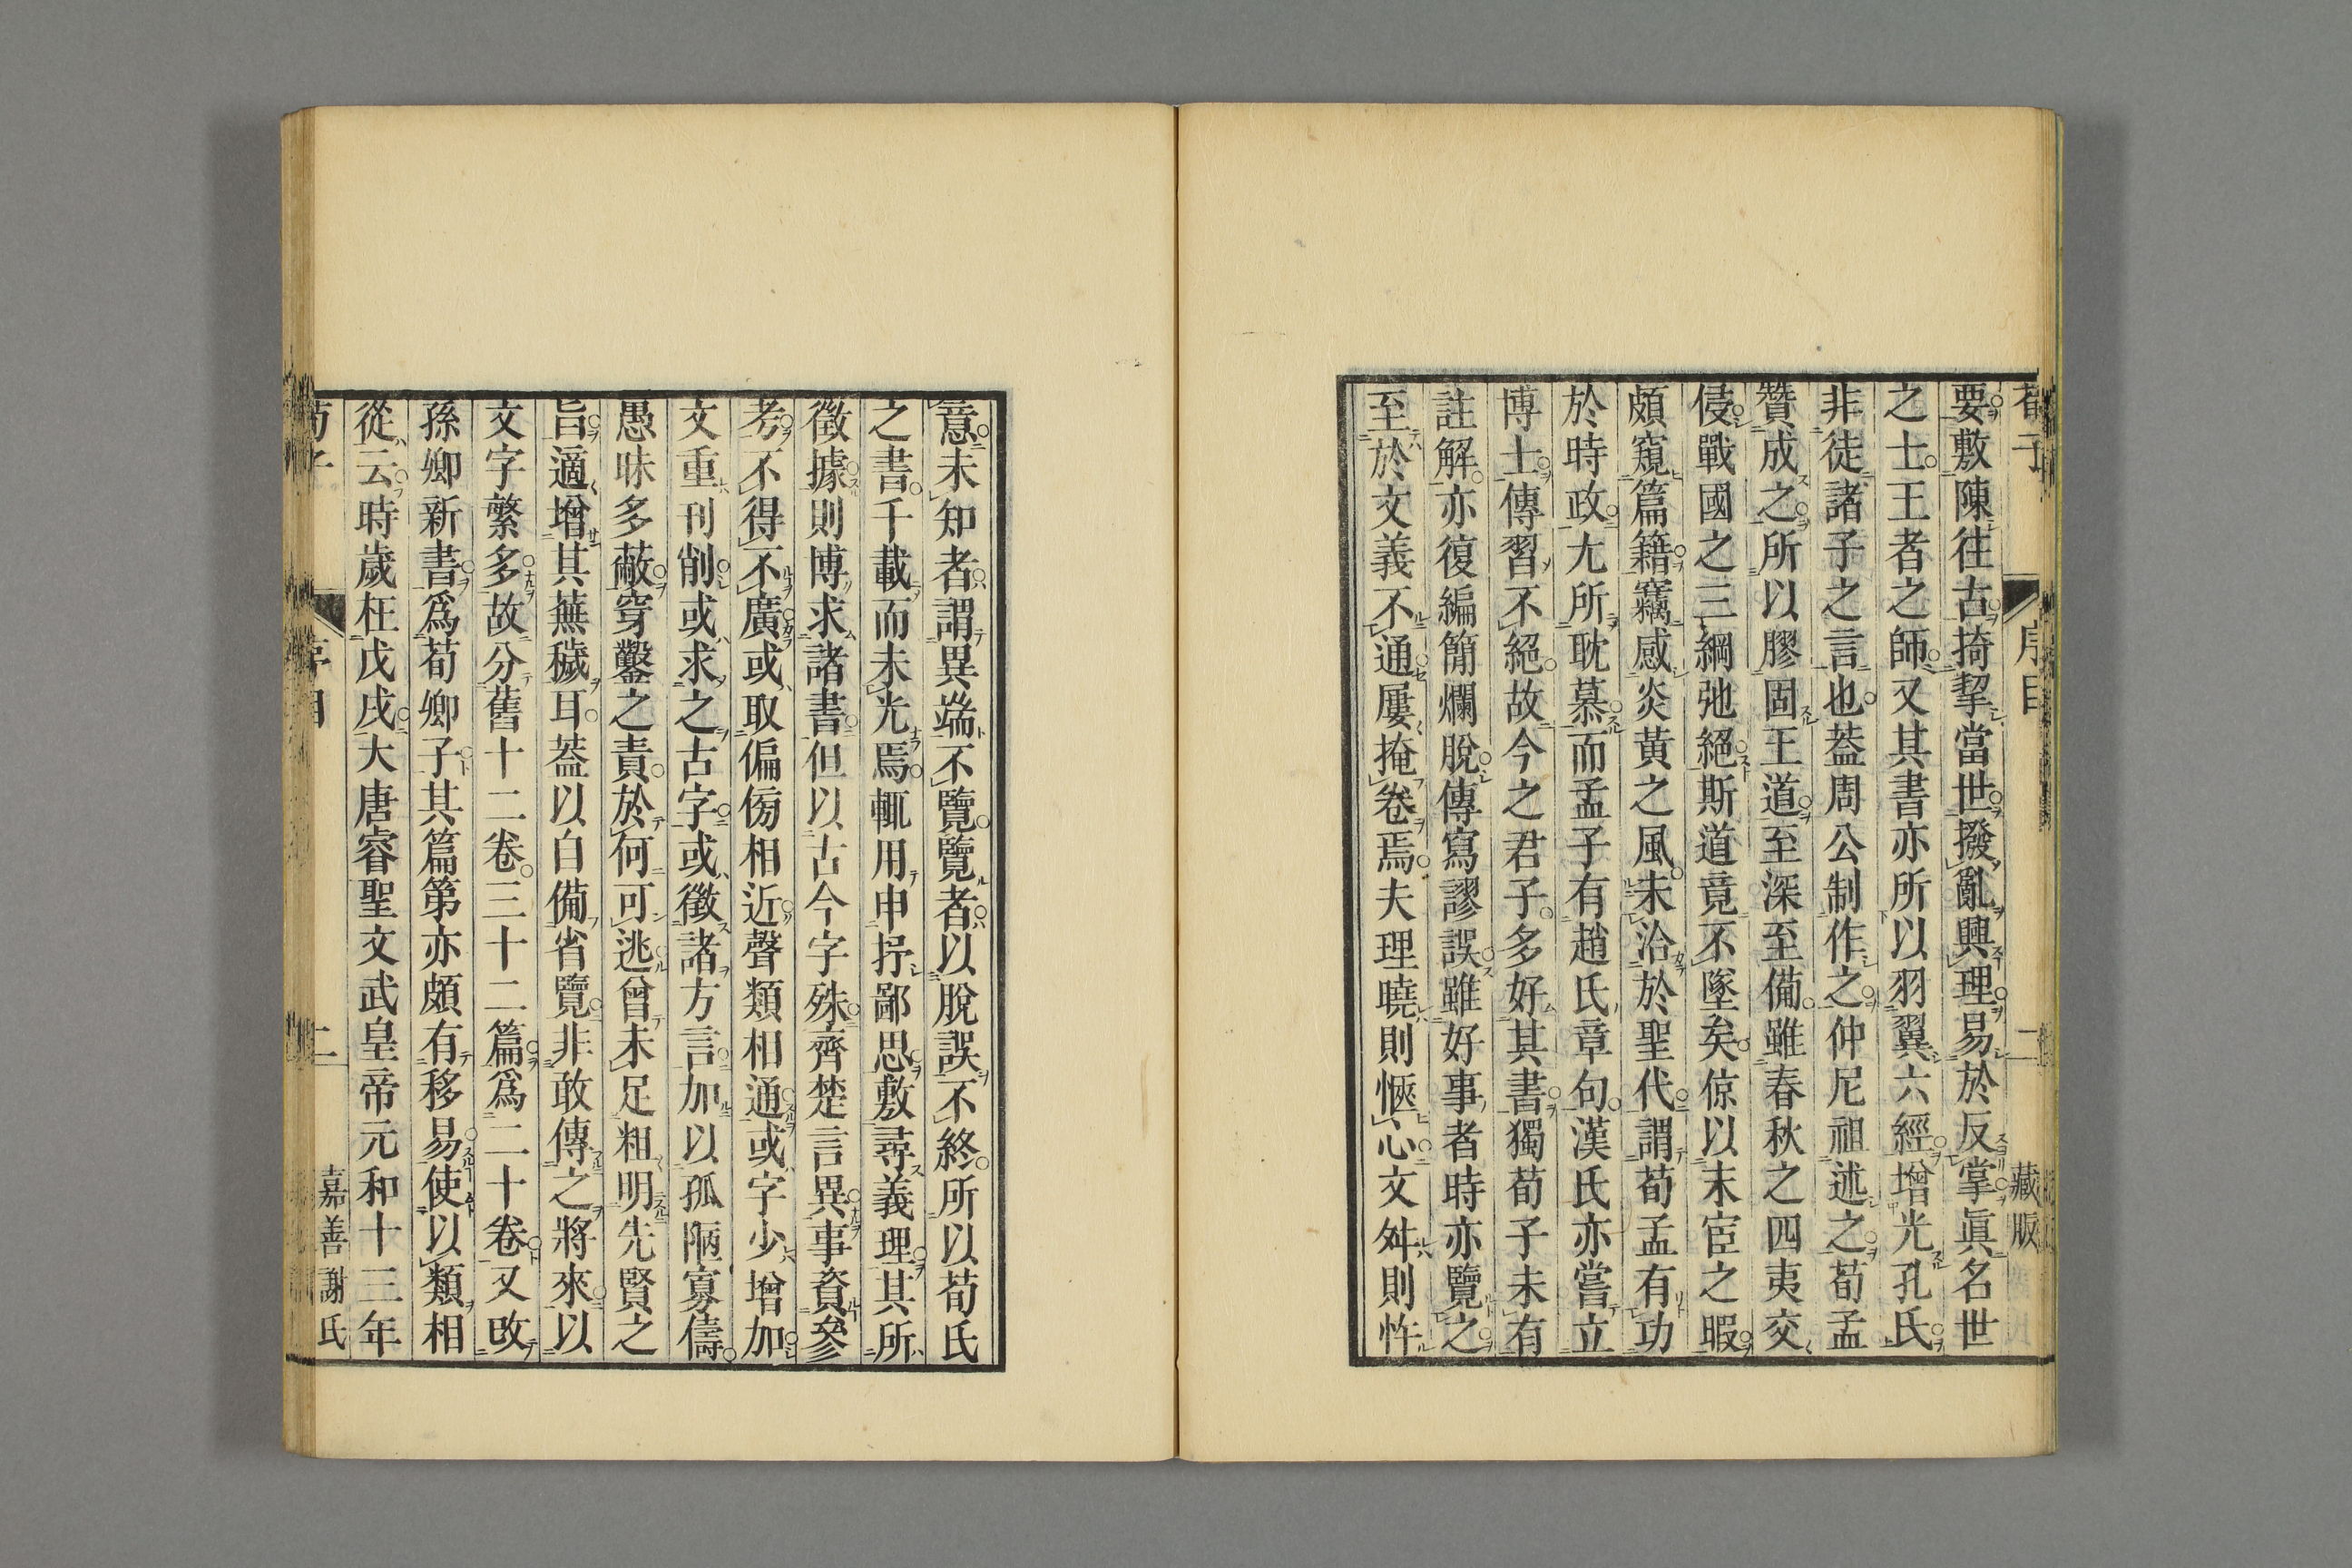 荀子 序目 二 藏版
要敷陳往古掎挈當世撥亂興理易於反掌眞名世
之士王者之師又其書亦所以羽翼六經增光孔氏
非徒諸子之言也葢周公制作之仲尼祖述之荀孟
贊成之所以膠固王道至深至備雖春秋之四夷交
侵戰國之三綱弛絕斯道竟不墜矣倞以末宦之暇
頗窺篇籍竊感炎黃之風未洽於聖代謂荀孟有功
於時政尤所耽慕而孟子有趙氏章句漢氏亦嘗立
博士傳習不絕故今之君子多好其書獨荀子未有
註解亦復編簡爛脫傳寫謬誤雖好事者時亦覽之
至於文義不通屢掩卷焉夫理曉則愜心文舛則忤
意未知者謂異端不覽覽者以脫誤不終所以荀氏
之書千載而未光焉輒用申抒鄙思敷尋義理其所
徵據則博求諸書但以古今字殊齊楚言異事資參
考不得不廣或取偏傍相近聲類相通或字少增加
文重刊削或求之古字或徵諸方言加以孤陋寡儔
愚昧多蔽穿鑿之責於何可逃曾未足粗明先賢之
旨適增其蕪穢耳葢以自備省覽非敢傳之將來以
文字繁多故分舊十二卷三十二篇爲二十卷又改
孫卿新書爲荀卿子其篇第亦頗有移易使以類相
從云時歲在戊戌大唐睿聖文武皇帝元和十三年
荀子 序目 二 嘉善謝氏